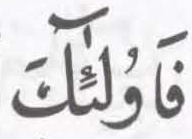 فَاُولٰٓئِكَ